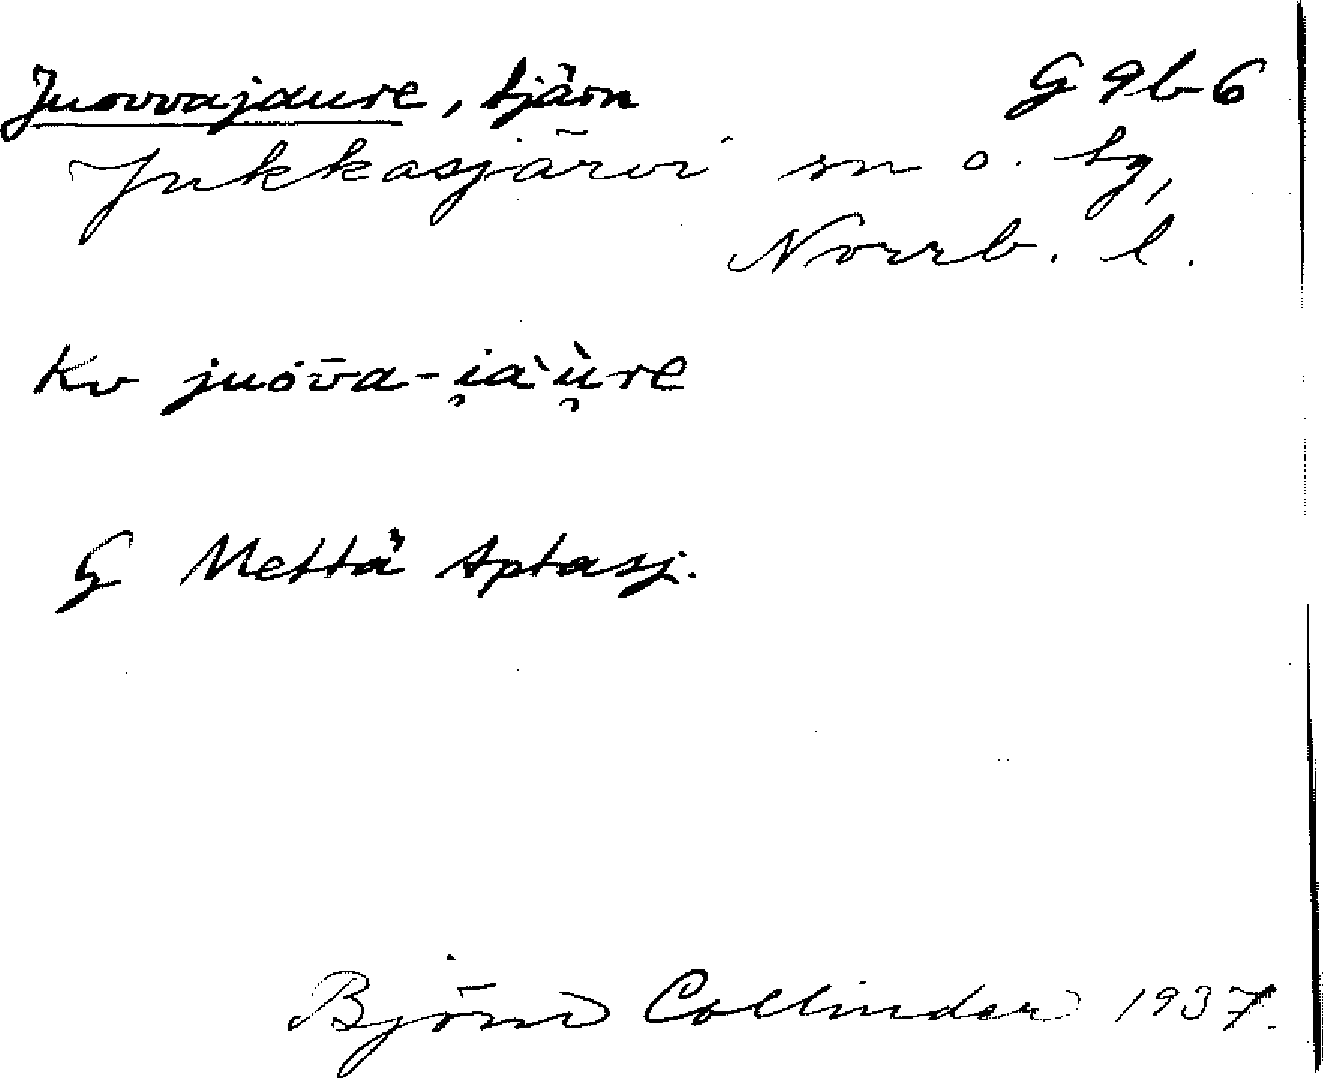 Juovvajaure, tjärn G 9 b 6
Jukkasjärvi sn o. tg,
Norrb. l.
Kv juȯv̄a-i̯àù̯re
G Mettä Aptasj.
Björn Collinder 1937.